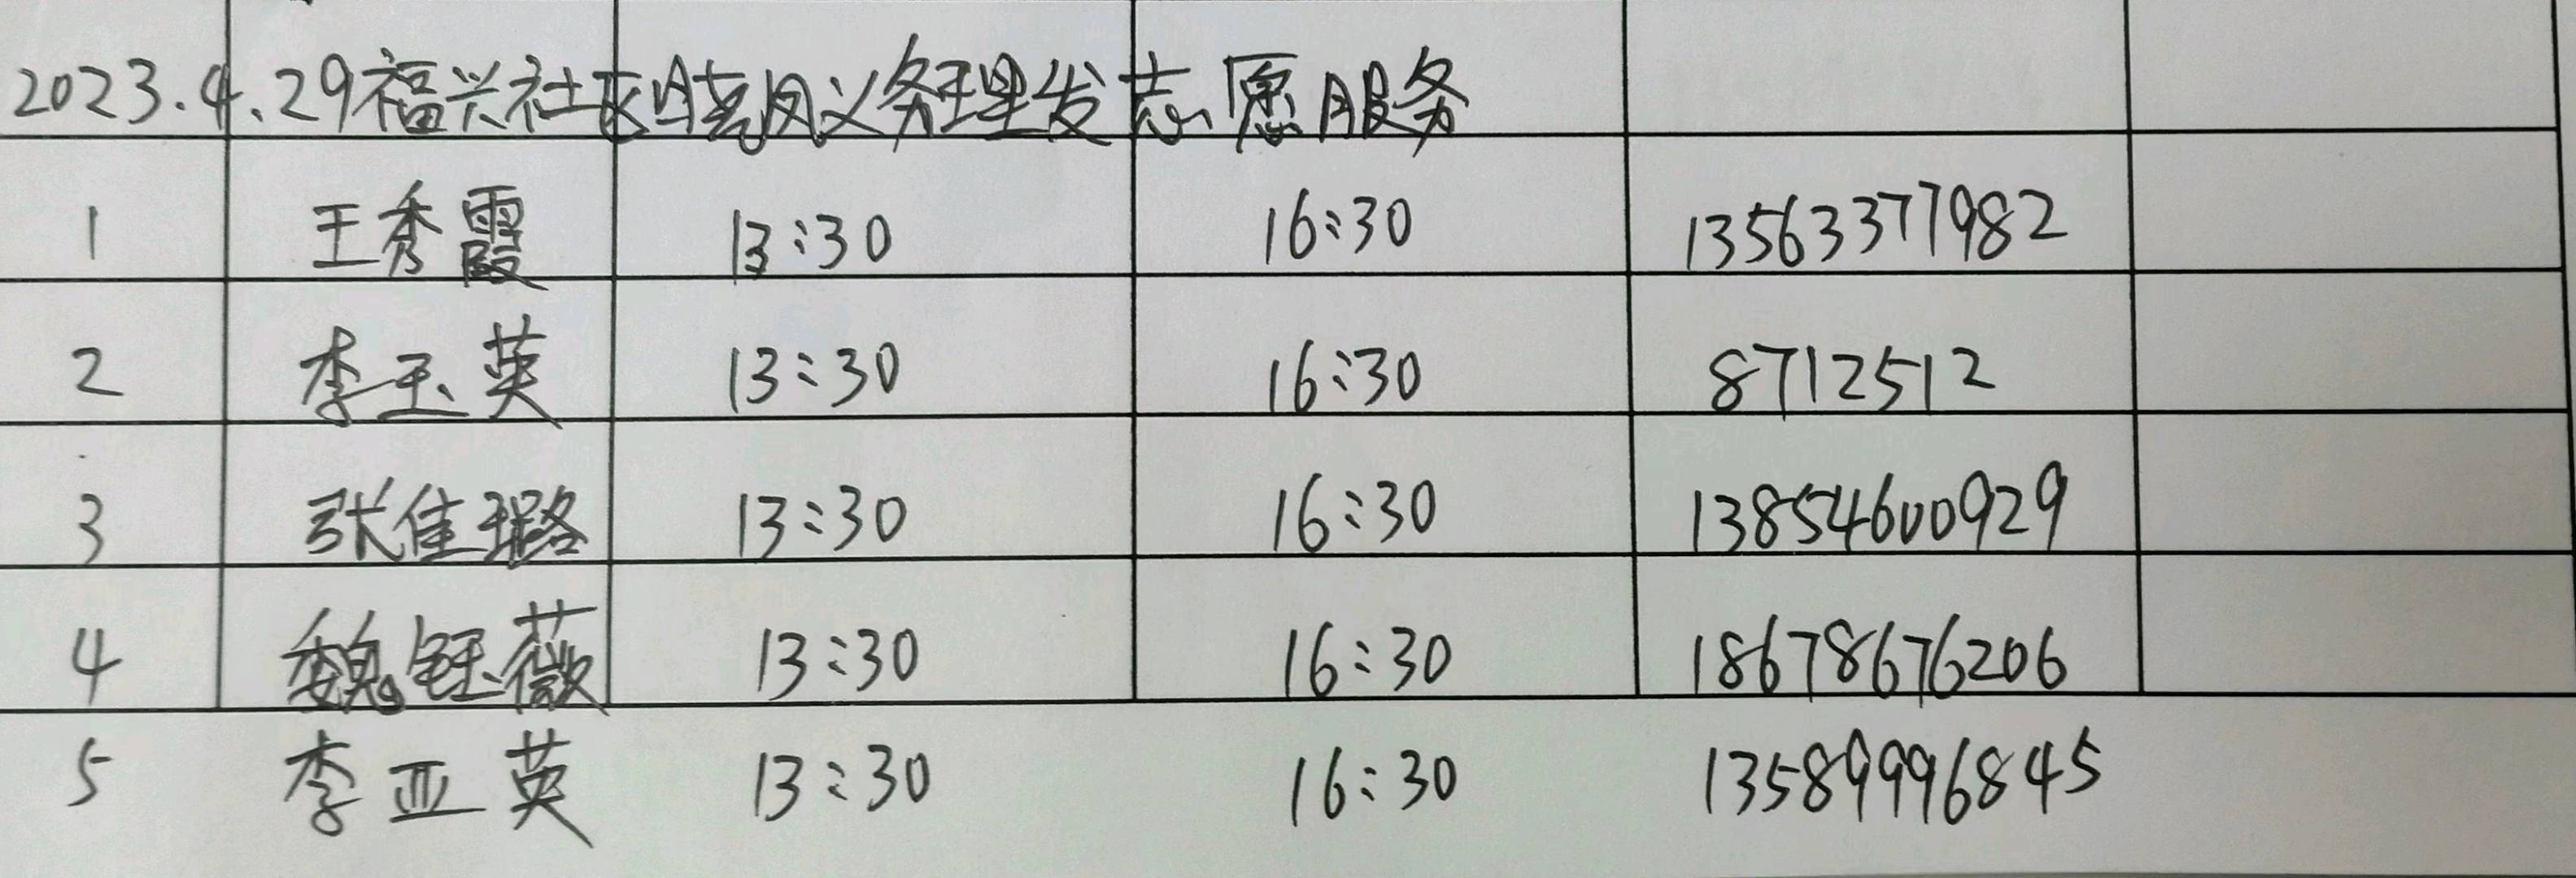 2023.4.29福兴社区晓风义务理发志愿服务
1 王秀霞 13:30 16:30 13563377982
2 李玉英 13:30 16:30 8712512
3 张佳璐 13:30 16:30 13854600929
4 魏钰薇 13:30 16:30 18678676206
5 李亚英 13:30 16:30 13589996845